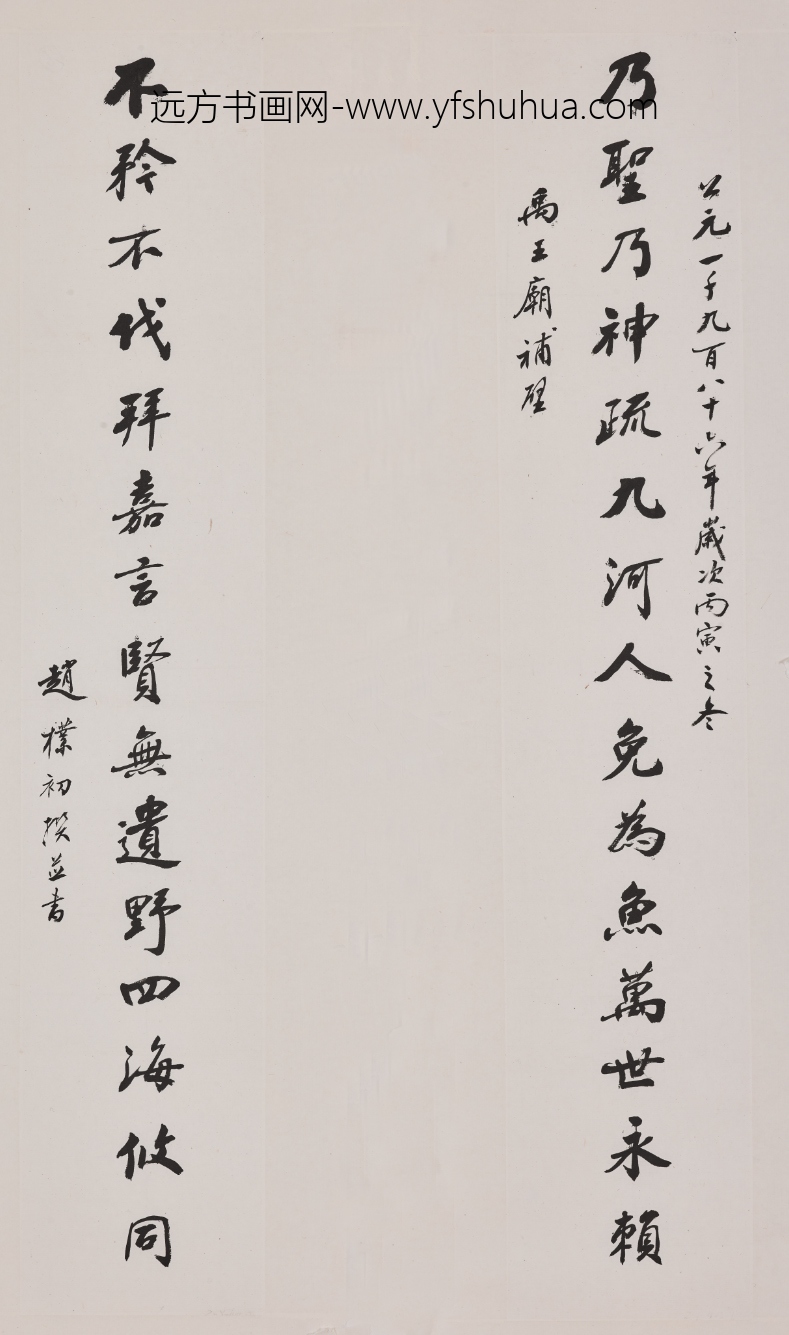 远方书画网-www.yfshuhua.com
公元一千九百八十六年歲次丙寅之冬
乃聖乃神疏九河人免為魚萬世永賴
禹王廟補壁
不矜不伐拜嘉言賢無遺野四海攸同
趙樸初撰並書